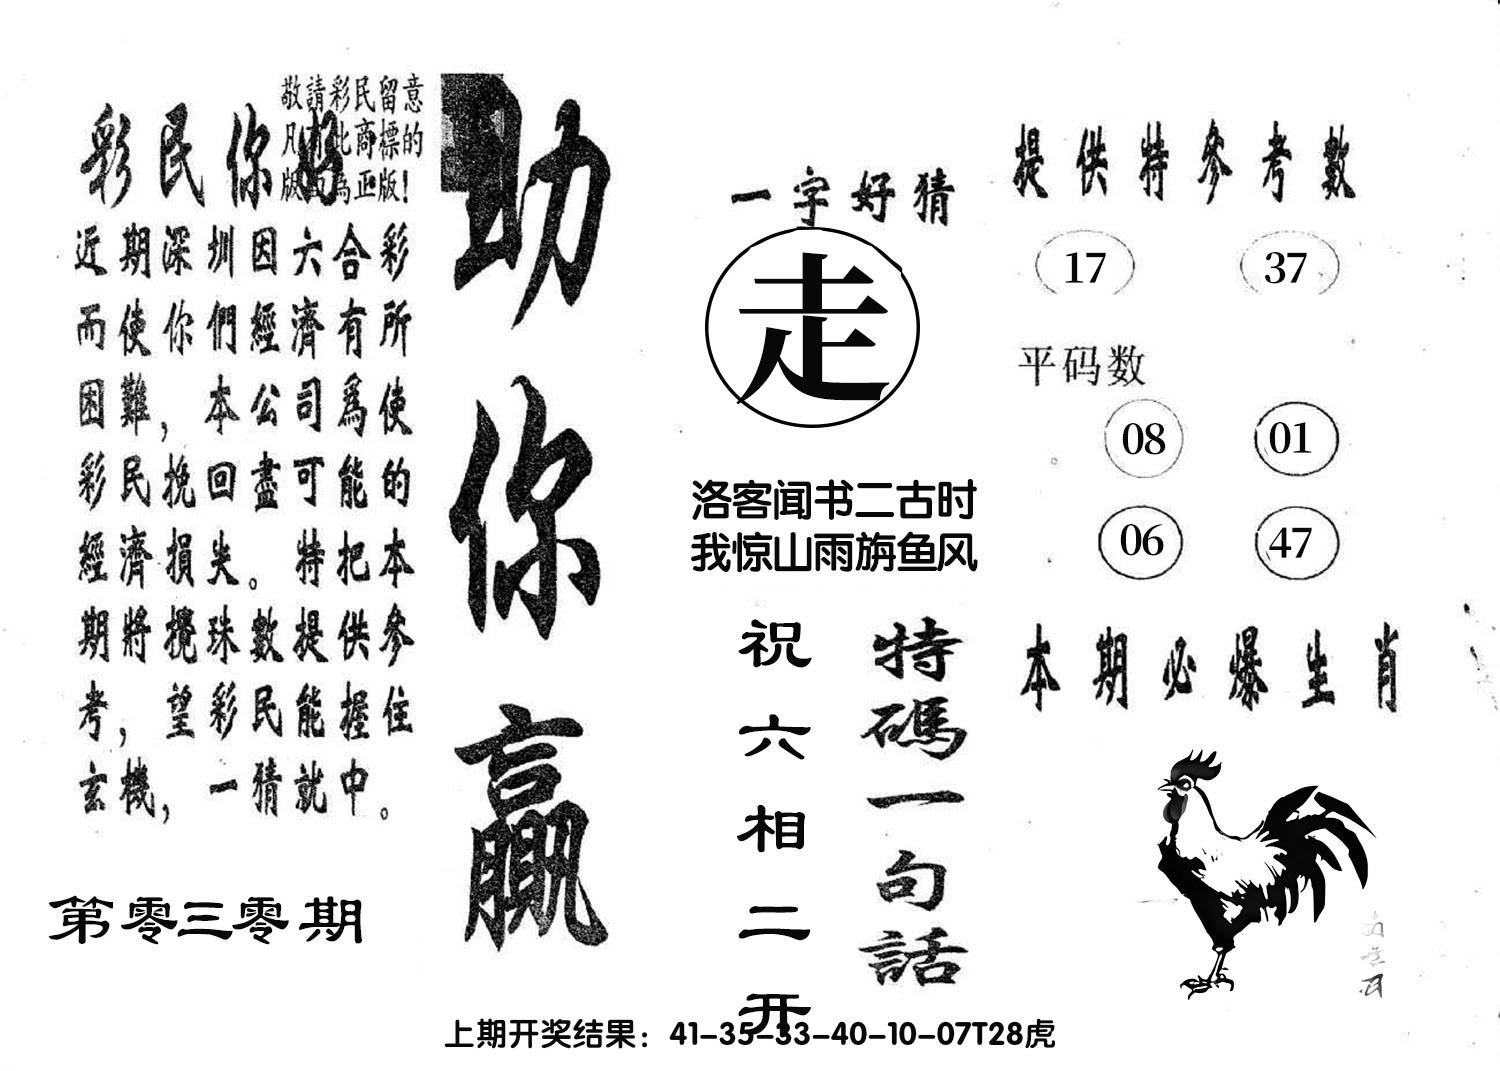 敬請彩民留意
凡有此商標的
版面為正版!
彩民你好
近期深圳因六合彩
而使你們經濟有所
困難，本公司爲使
彩民挽回盡可能的
經濟損失。特把本
期將攪珠數提供參
考，望彩民能握住
玄機，一猜就中。
第零三零期
助你贏
一字好猜
走
洛客闻书二古时
我惊山雨旃鱼风
特碼一句話
祝六相二开
提供特參考數
17 37
平码数
08 01
06 47
本期必爆生肖
上期开奖结果：41-35-33-40-10-07T28虎